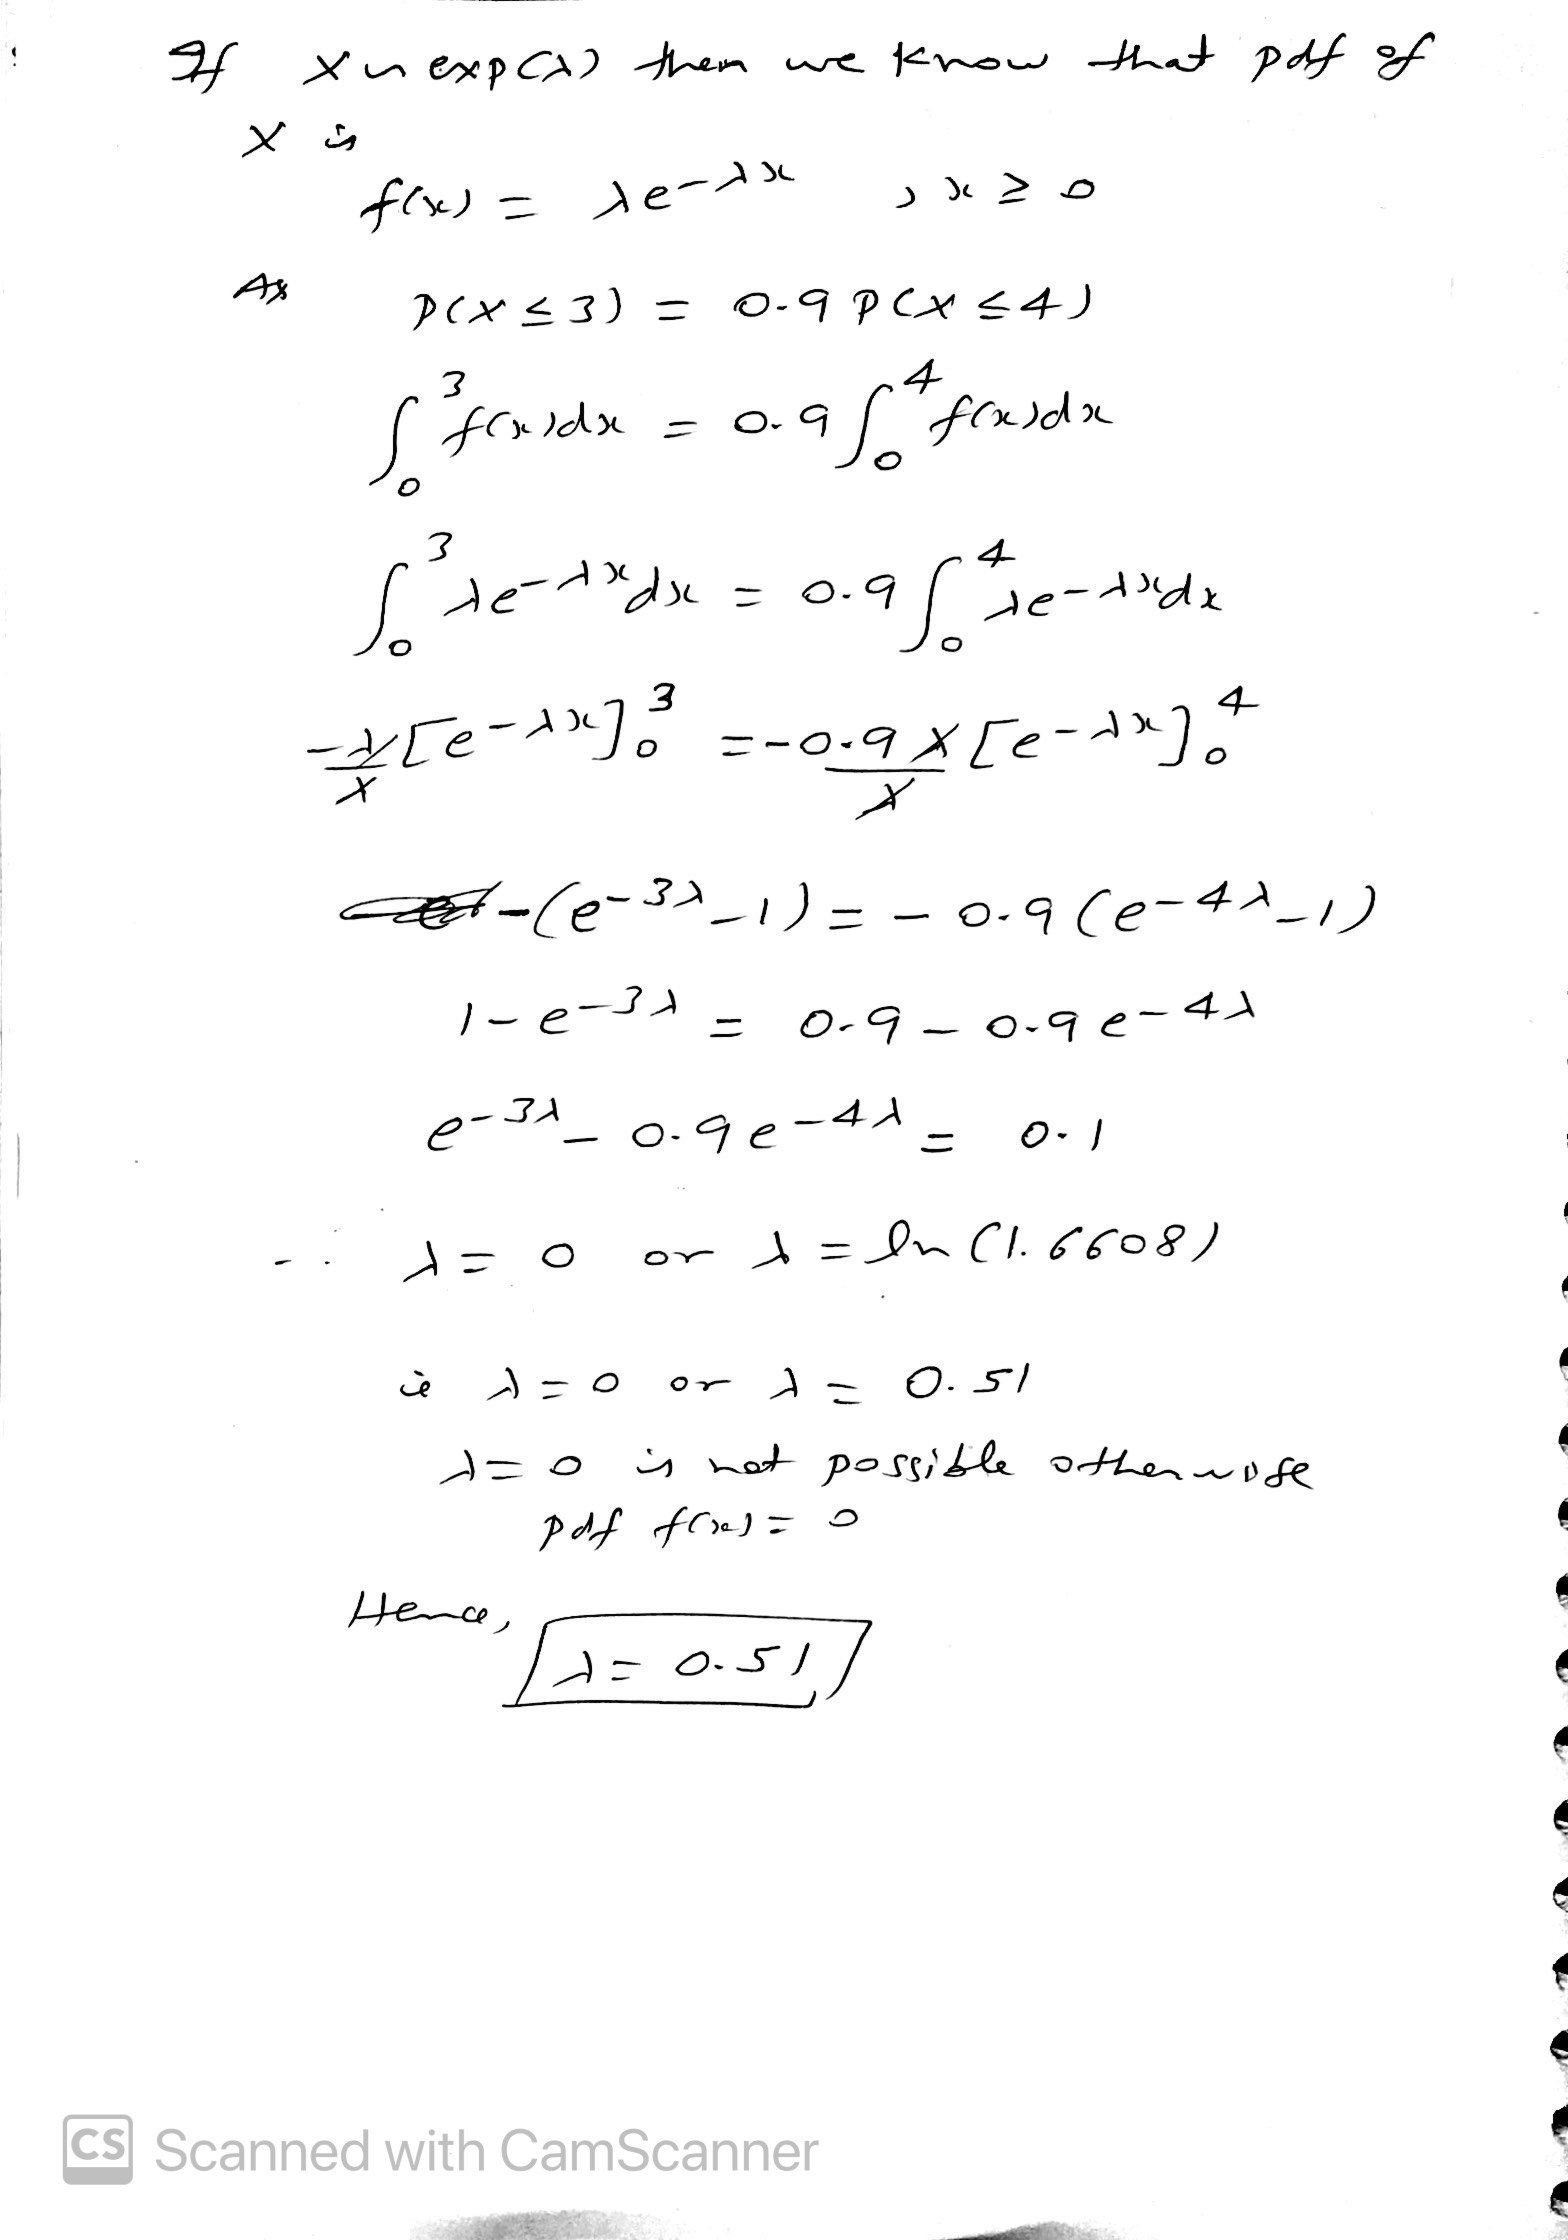 If X ~ exp(λ) then we know that pdf of
X is
f(x) = λe^{-λx} , x ≥ 0
As P(X ≤ 3) = 0.9 P(X ≤ 4)
∫_0^3 f(x)dx = 0.9 ∫_0^4 f(x)dx
∫_0^3 λe^{-λx}dx = 0.9 ∫_0^4 λe^{-λx}dx
-λ/λ [e^{-λx}]_0^3 = -0.9 λ/λ [e^{-λx}]_0^4
-(e^{-3λ} - 1) = -0.9 (e^{-4λ} - 1)
1 - e^{-3λ} = 0.9 - 0.9 e^{-4λ}
e^{-3λ} - 0.9 e^{-4λ} = 0.1
∴ λ = 0 or λ = ln(1.6608)
ie λ = 0 or λ = 0.51
λ = 0 is not possible otherwise
pdf f(x) = 0
Hence,
λ = 0.51
CS Scanned with CamScanner